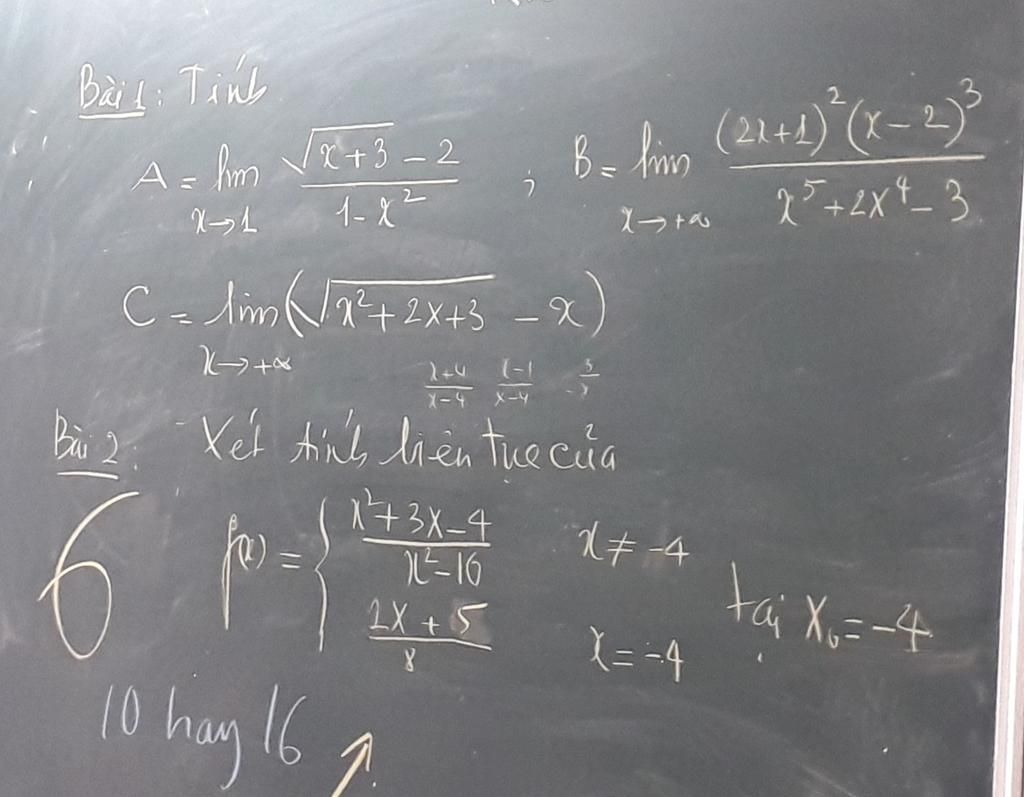 Bài 1: Tính
A = lim x→1 (√(x+3) - 2)/(1 - x²) ; B = lim x→+∞ ((2x+1)²(x-2)³)/(x⁵+2x⁴-3)
C = lim x→+∞ (√(x²+2x+3) - x)
(x+4)/(x-4) (x-1)/(x-4)
Bài 2: Xét tính liên tục của
f(x) = { (x²+3x-4)/(x²-16) x ≠ -4
(2x+5)/8 x = -4 tại x₀ = -4
6
10 hay 16